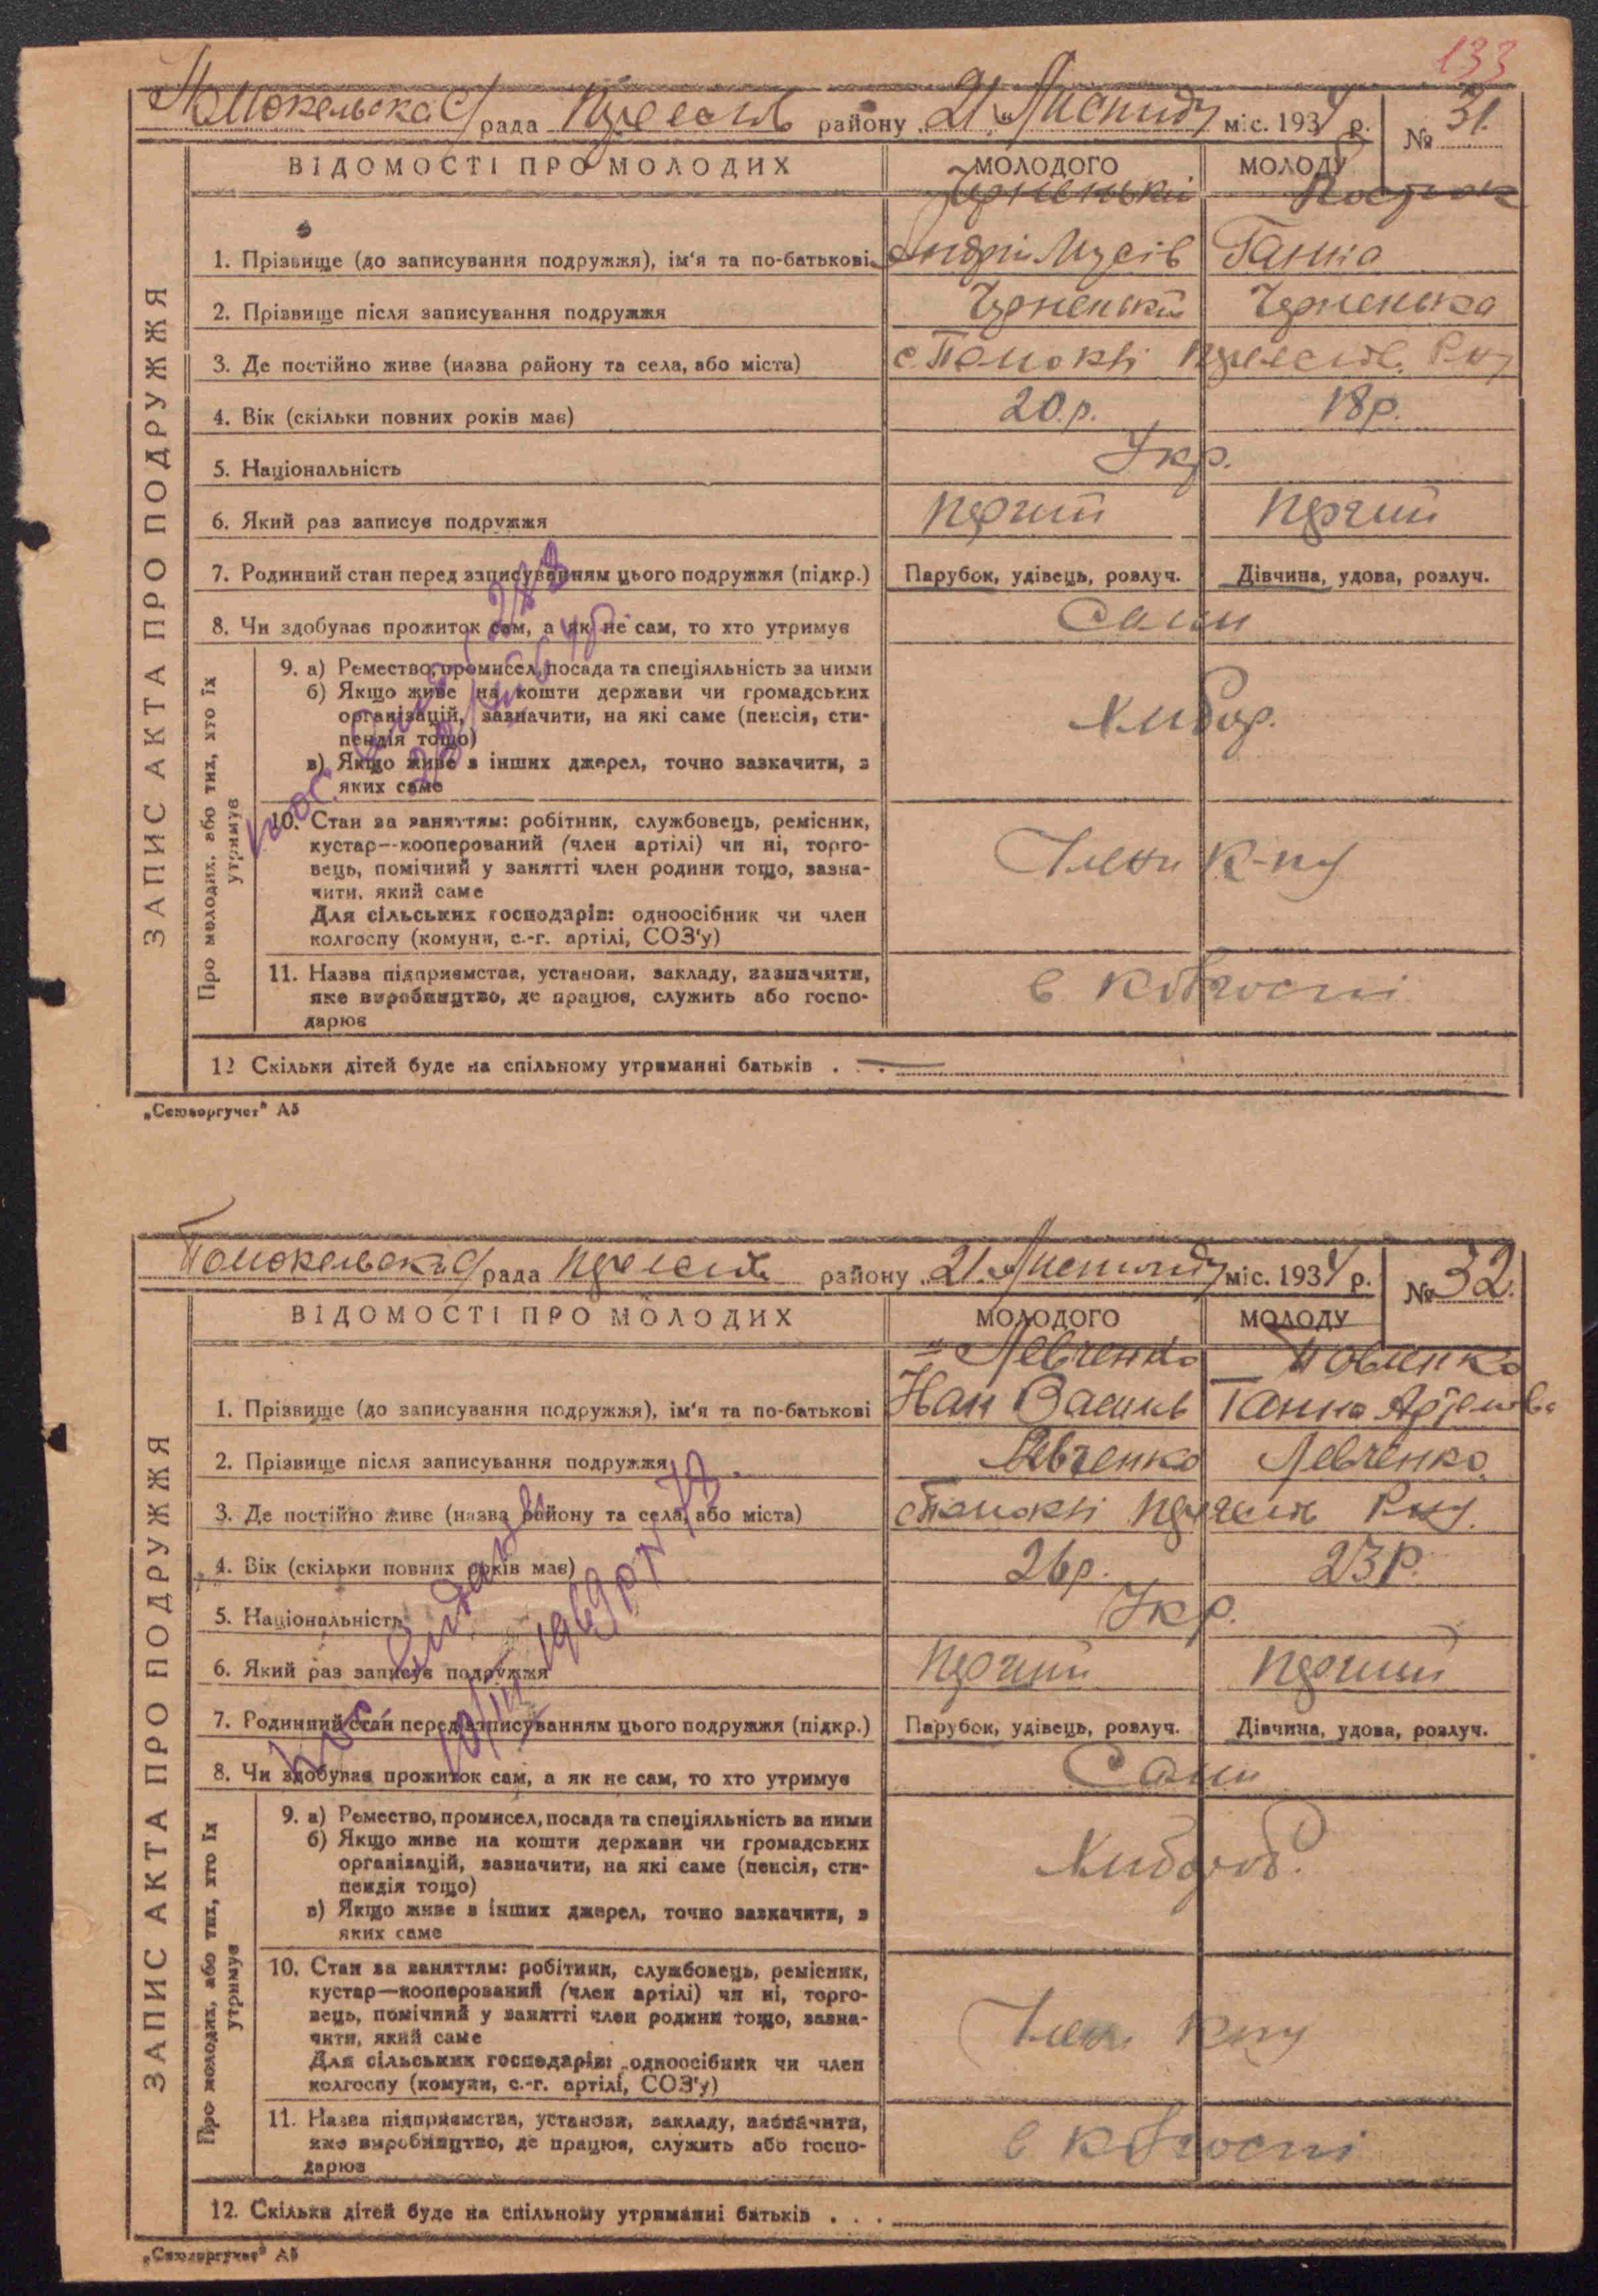 133
рада району 21 Листопаду міс. 1934 р. № 31.
ВІДОМОСТІ ПРО МОЛОДИХ МОЛОДОГО МОЛОДУ
Черненький
1. Прізвище (до записування подружжя), ім'я та по-батькові Андрій Мусів Ганна
2. Прізвище після записування подружжя Черненький Черненька
3. Де постійно живе (назва району та села, або міста) с.
4. Вік (скільки повних років має) 20 р. 18 р.
5. Національність Укр.
6. Який раз записує подружжя
7. Родинний стан перед записуванням цього подружжя (підкр.) Парубок, удівець, розлуч. Дівчина, удова, розлуч.
8. Чи здобуває прожиток сам, а як не сам, то хто утримує Сами
ЗАПИС АКТА ПРО ПОДРУЖЖЯ
Про молодих, або тих, хто їх утримує
9. а) Ремество, промисел, посада та спеціяльність за ними
б) Якщо живе на кошти держави чи громадських
організацій, зазначити, на які саме (пенсія, сти-
пендія тощо)
в) Якщо живе з інших джерел, точно зазкачити, з
яких саме
10. Стан за заняттям: робітник, службовець, ремісник,
кустар—кооперований (член артілі) чи ні, торго-
вець, помічний у занятті член родини тощо, зазна-
чити, який саме
Для сільських господарів: одноосібник чи член
колгоспу (комуни, с.-г. артілі, СОЗ'у)
Члени к-пу
11. Назва підприємства, установи, закладу, зазначити,
яке виробництво, де працює, служить або госпо-
дарює
в колгоспі
12 Скільки дітей буде на спільному утриманні батьків . . .
„Союзоргучет" А5
рада району 21 Листопаду міс. 1934 р. № 32.
ВІДОМОСТІ ПРО МОЛОДИХ МОЛОДОГО МОЛОДУ
Левченко
1. Прізвище (до записування подружжя), ім'я та по-батькові Іван Василь Ганна
2. Прізвище після записування подружжя Левченко Левченко
3. Де постійно живе (назва району та села, або міста) с.
4. Вік (скільки повних років має) 26 р. 23 р.
5. Національність Укр.
6. Який раз записує подружжя
7. Родинний стан перед записуванням цього подружжя (підкр.) Парубок, удівець, розлуч. Дівчина, удова, розлуч.
8. Чи здобуває прожиток сам, а як не сам, то хто утримує Сами
ЗАПИС АКТА ПРО ПОДРУЖЖЯ
Про молодих, або тих, хто їх утримує
9. а) Ремество, промисел, посада та спеціяльність за ними
б) Якщо живе на кошти держави чи громадських
організацій, зазначити, на які саме (пенсія, сти-
пендія тощо)
в) Якщо живе з інших джерел, точно зазкачити, з
яких саме
10. Стан за заняттям: робітник, службовець, ремісник,
кустар—кооперований (член артілі) чи ні, торго-
вець, помічний у занятті член родини тощо, зазна-
чити, який саме
Для сільських господарів: одноосібник чи член
колгоспу (комуни, с.-г. артілі, СОЗ'у)
Члени кпу
11. Назва підприємства, установи, закладу, зазначити,
яке виробництво, де працює, служить або госпо-
дарює
в колгоспі
12. Скільки дітей буде на спільному утриманні батьків . . .
„Союзоргучет" А5